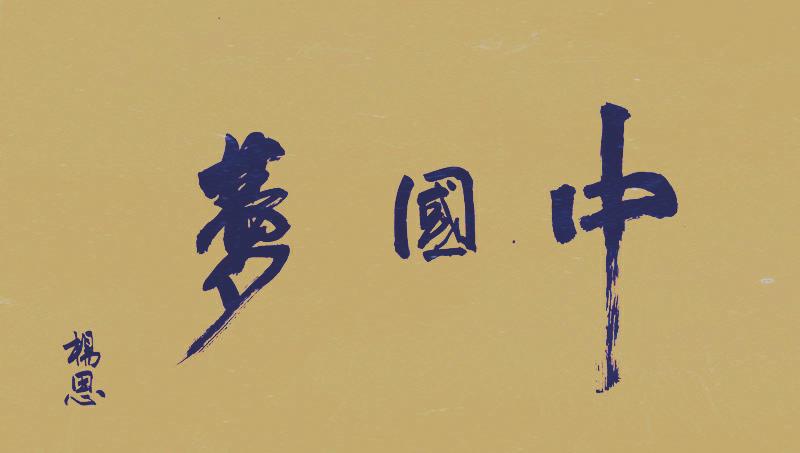 中國夢
楊恩